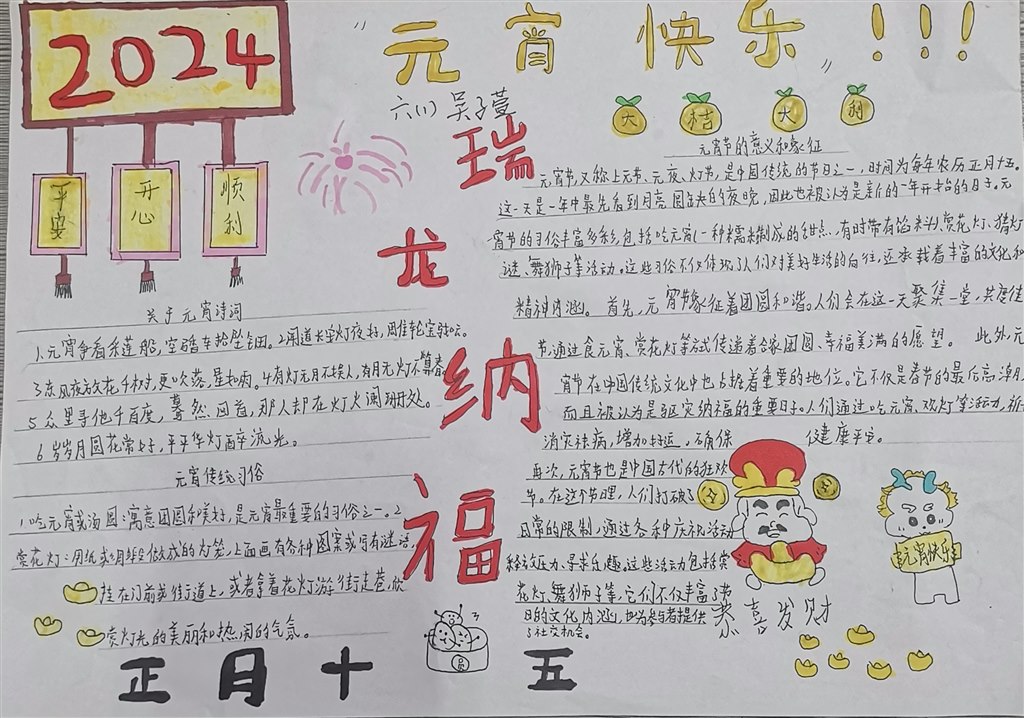 2024
平安
开心
顺利
"元宵快乐"!!!
六(1) 吴子萱
大 桔 大 利
瑞龙纳福
关于元宵诗词
1.元宵争看采莲船,宝马香车拾坠钿。2.闻道长安灯夜好,雕轮宝马如云。
3.东风夜放花千树,更吹落,星如雨。4.有灯无月不娱人,有月无灯不算春。
5.众里寻他千百度,蓦然回首,那人却在灯火阑珊处。
6.岁岁月圆花常好,平平华灯醉流光。
元宵传统习俗
1.吃元宵或汤圆:寓意团圆和美好,是元宵最重要的习俗之一。2
赏花灯:用纸或绢等做成的灯笼,上面画有各种图案或写有谜语,
挂在门前或街道上,或者拿着花灯游街走巷,欣
赏灯光的美丽和热闹的气氛。
正月十五
元宵节的意义和象征
元宵节,又称上元节、元夜、灯节,是中国传统的节日之一,时间为每年农历正月十五。
这一天是一年中最先看到月亮圆缺的夜晚,因此也被认为是新的一年开始的日子。元
宵节的习俗丰富多彩,包括吃元宵(一种糯米制成的甜点,有时带有馅料)、赏花灯、猜灯
谜、舞狮子等活动。这些习俗不仅体现了人们对美好生活的向往,还承载着丰富的文化和
精神内涵。首先,元宵节象征着团圆和谐。人们会在这一天聚集一堂,共度佳
节,通过食元宵、赏花灯等方式传递着合家团圆、幸福美满的愿望。 此外,元
宵节在中国传统文化中也占据着重要的地位。它不仅是春节的最后高潮,
而且被认为是驱灾纳福的重要日子。人们通过吃元宵、观灯等活动,祈
消灾祛病,增加好运。确保 健康平安。
再次,元宵节也是中国古代的狂欢
节。在这个节日里,人们打破了
日常的限制,通过各种庆祝活动
释放压力、寻求乐趣。这些活动包括赏
花灯、舞狮子等,它们不仅丰富了节
日的文化内涵,也为参与者提供
了社交机会。
元宵快乐
恭喜发财